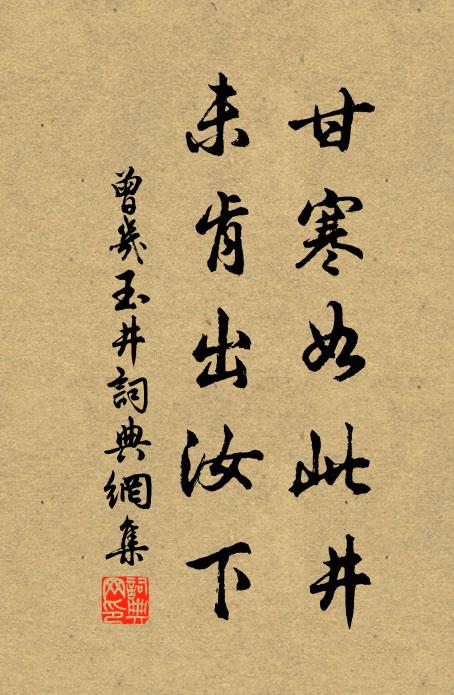 甘寒如此井
未肯出汝下
曾幾玉井詞典網集
詞典
网印